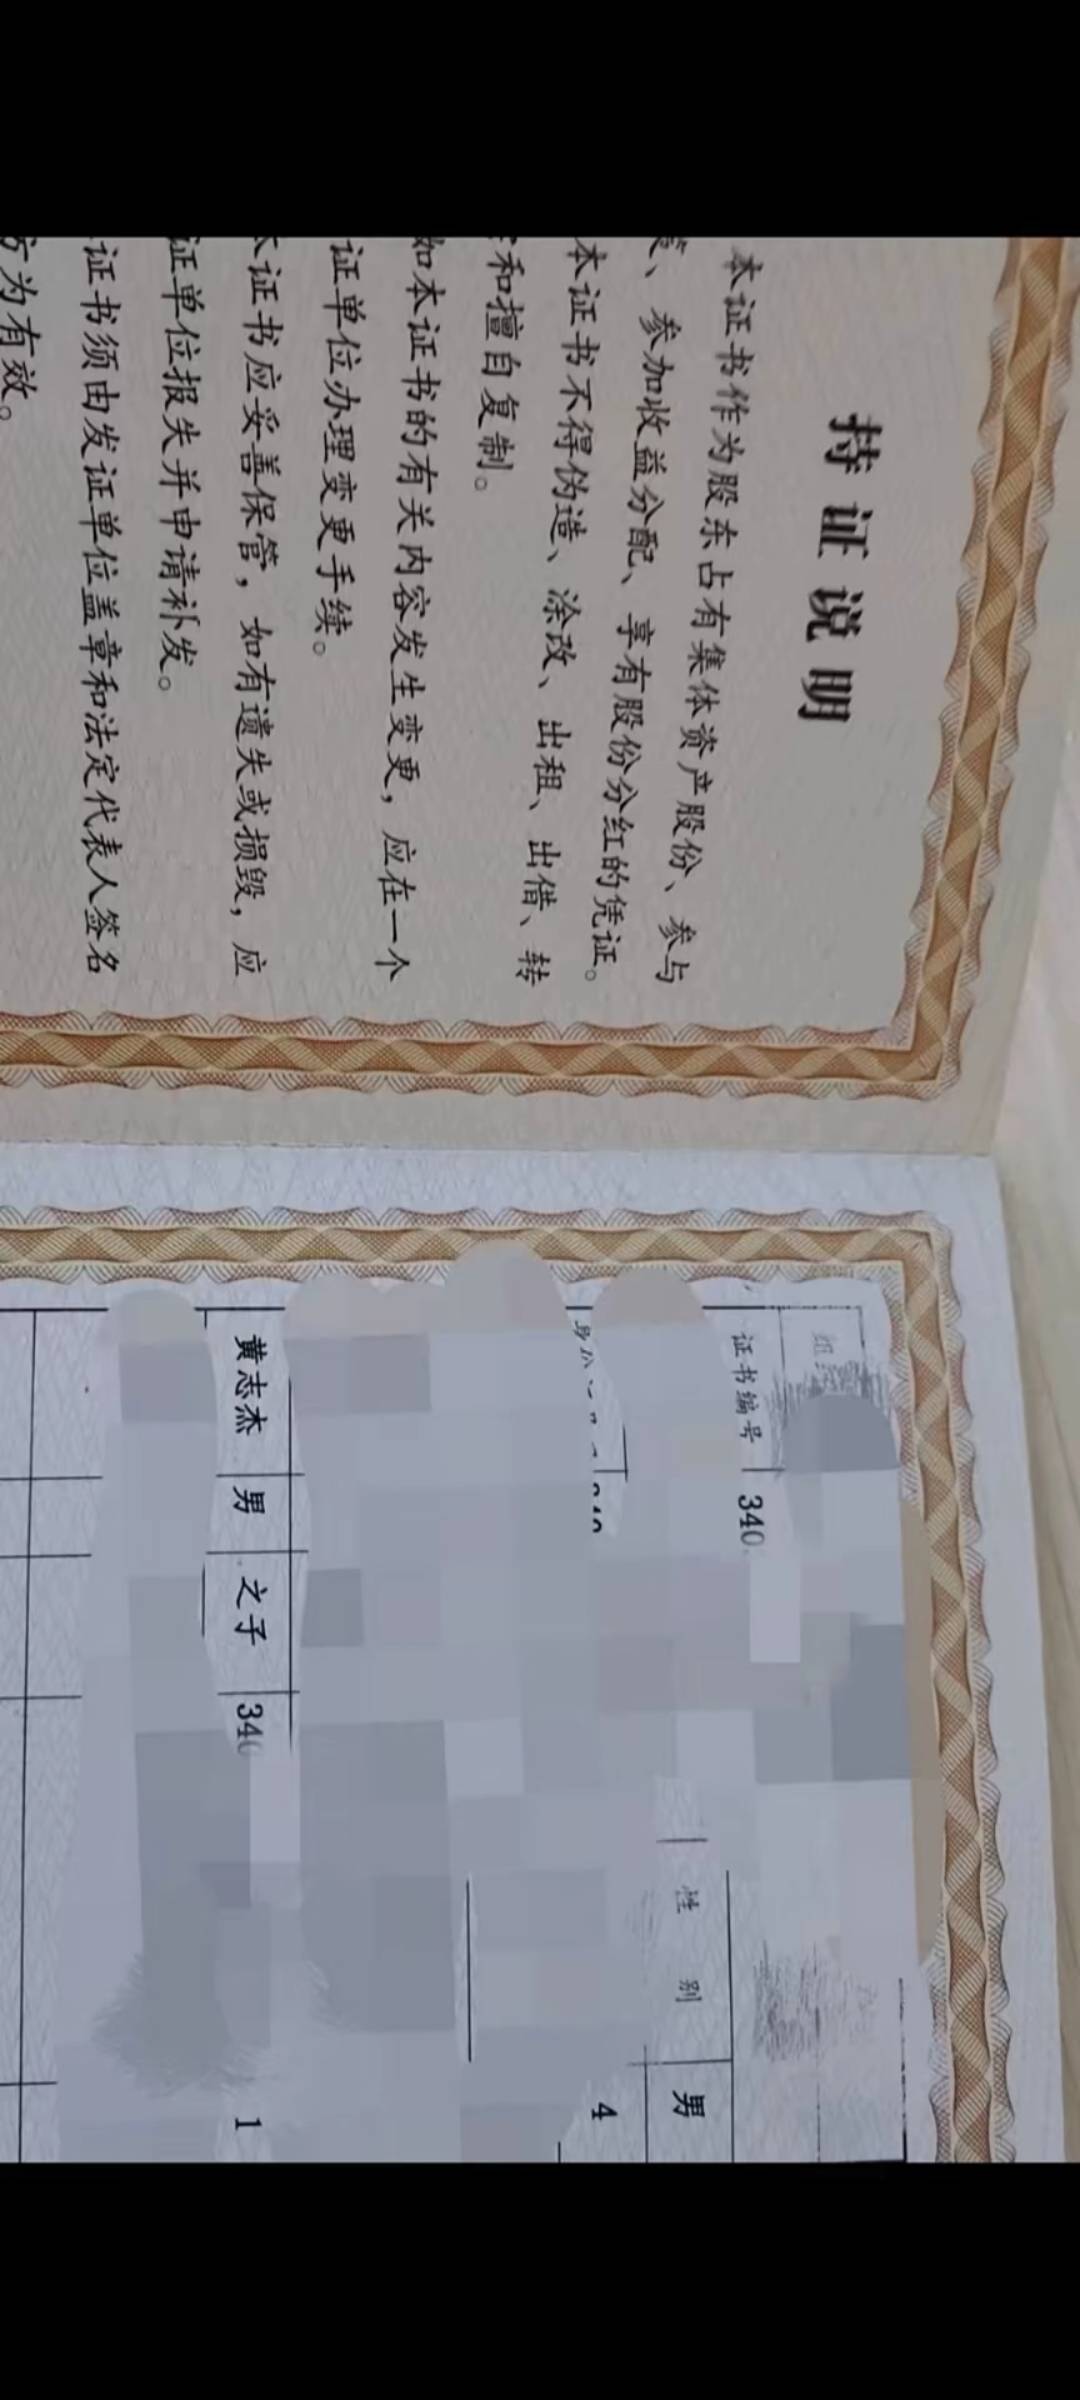 持证说明
本证书作为股东占有集体资产股份、参与
、参加收益分配、享有股份分红的凭证。
本证书不得伪造、涂改、出租、出借、转
和擅自复制。
如本证书的有关内容发生变更，应在一个
证单位办理变更手续。
本证书应妥善保管，如有遗失或损毁，应
证单位报失并申请补发。
证书须由发证单位盖章和法定代表人签名
方为有效。
证书编号 340
性别 男
4
黄志杰 男 之子 340 1